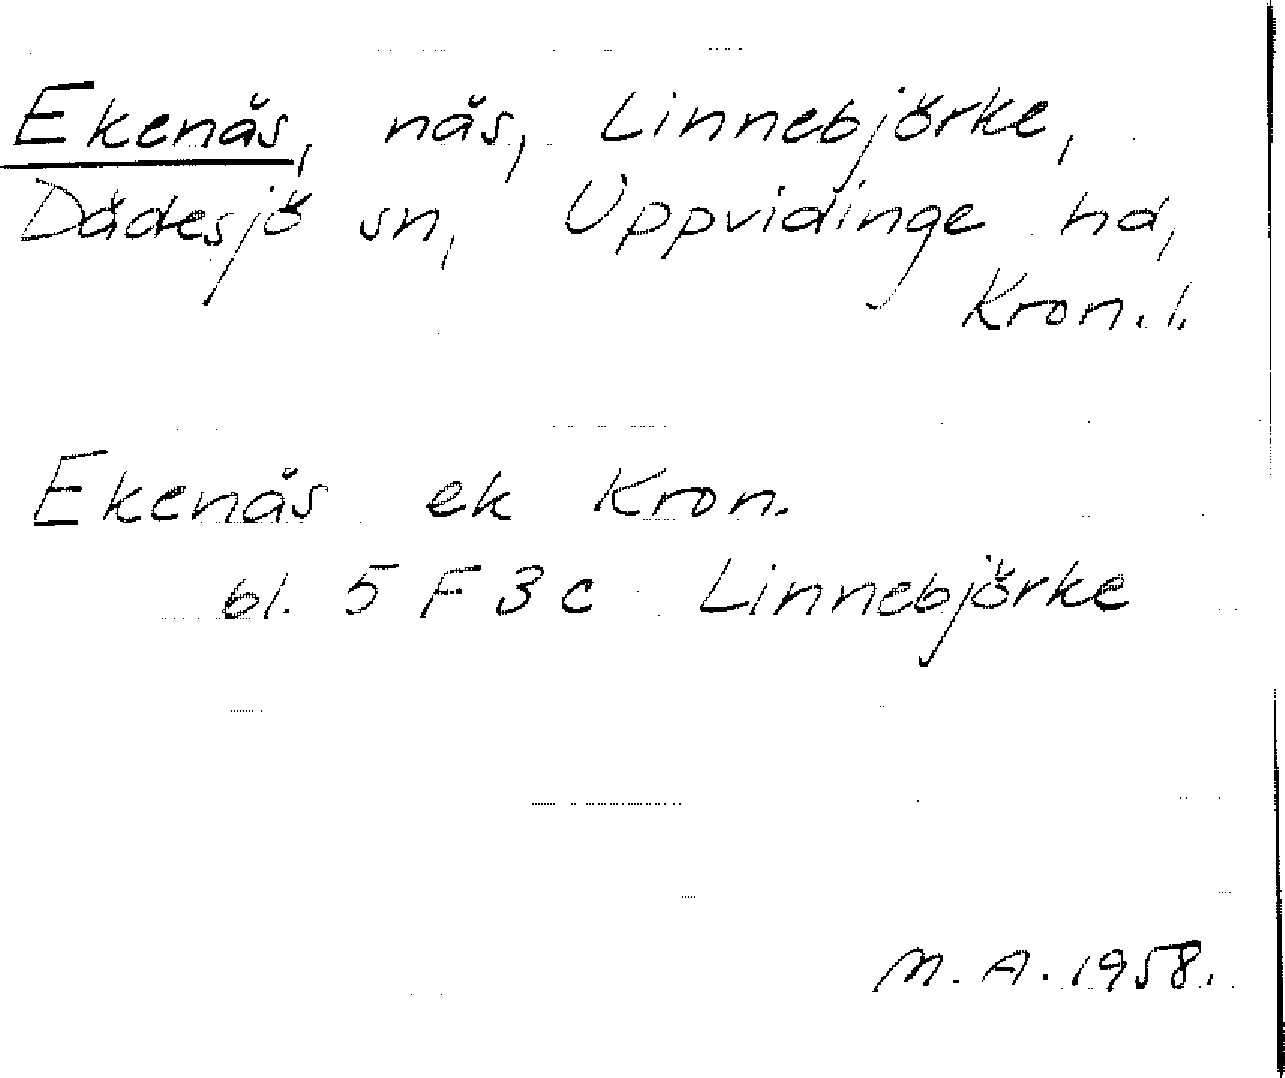 Ekenäs, näs, Linnebjörke,
Dädesjö sn, Uppvidinge hd,
Kron. l.
Ekenäs ek Kron.
bl. 5 F 3 c Linnebjörke
M. A. 1958.